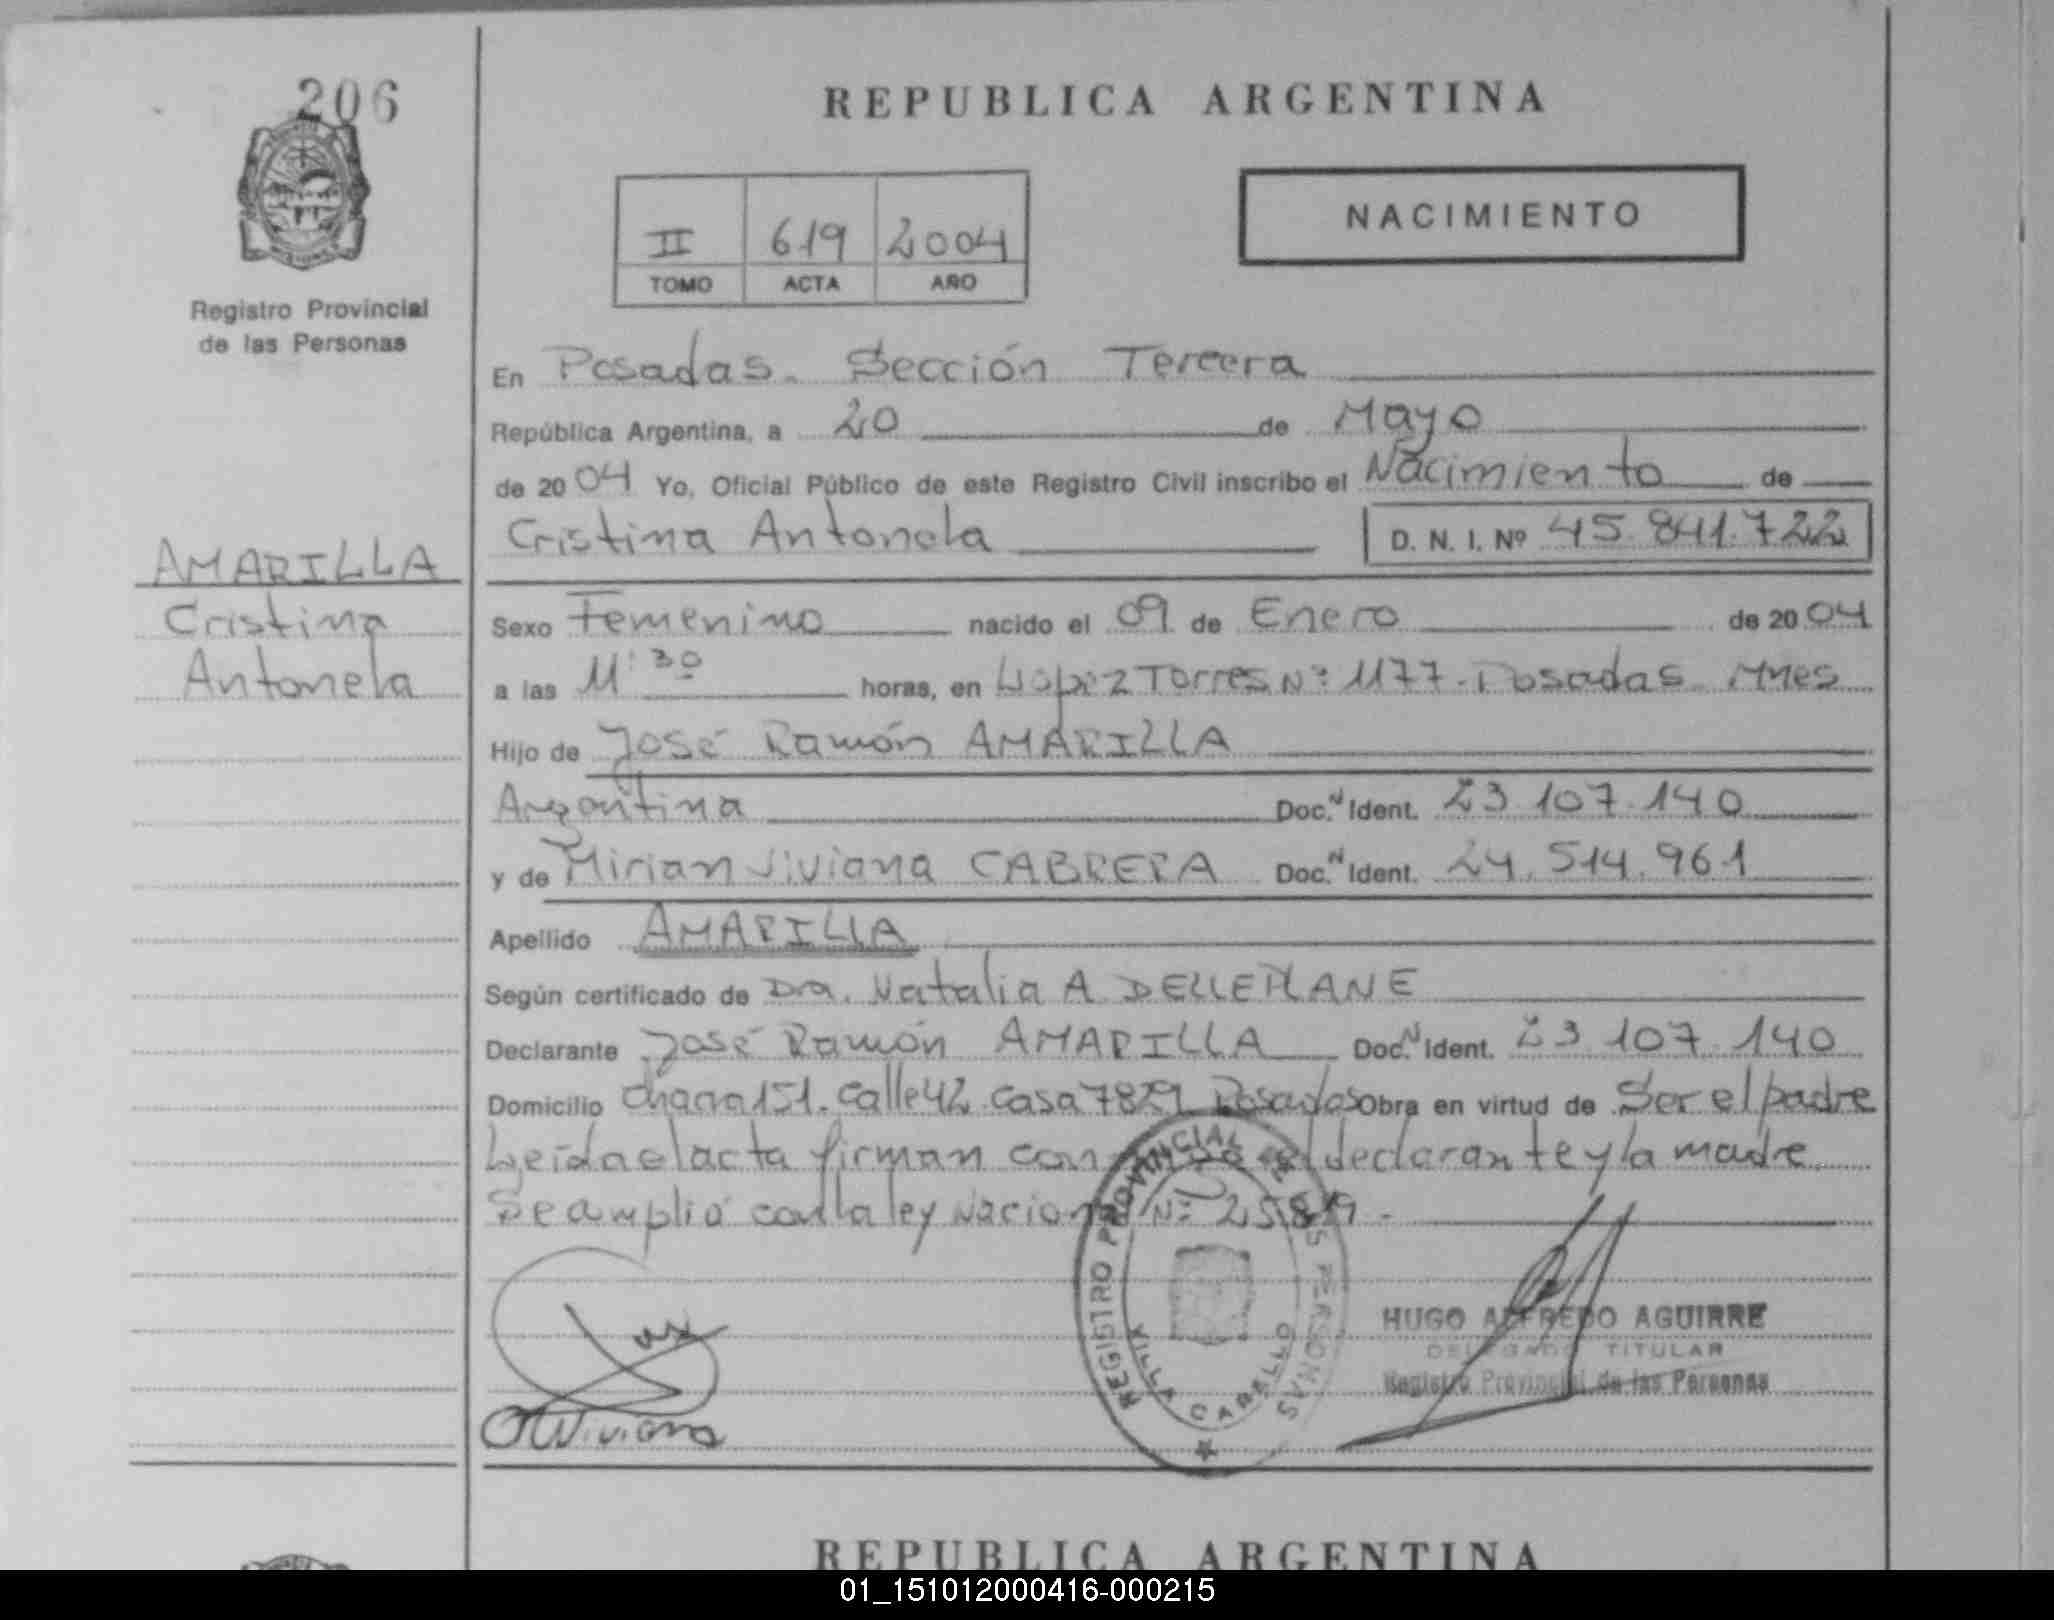 206
REPUBLICA ARGENTINA
NACIMIENTO
II 619 2004
TOMO ACTA AÑO
Registro Provincial
de las Personas
En Posadas. Sección Tercera
República Argentina, a 20 de Mayo
de 2004 Yo, Oficial Público de este Registro Civil inscribo el Nacimiento de
Cristina Antonela D. N. I. Nº 45.841.722
AMARILLA
Cristina
Antonela
Sexo Femenino nacido el 09 de Enero de 2004
a las 11:30 horas, en López Torres Nº 1177. Posadas. Mnes
Hijo de José Ramón AMARILLA
Argentina Doc. N Ident. 23.107.140
y de Mirian Viviana CABRERA Doc. N Ident. 24.514.961
Apellido AMARILLA
Según certificado de Dra. Natalia A. DELLEPIANE
Declarante José Ramón AMARILLA Doc. N Ident. 23.107.140
Domicilio Chacra 151. Calle 42 Casa 7829 Posadas Obra en virtud de Ser el padre
Leída el acta firman el declarante y la madre
Se amplió con la ley Nacional Nº
REGISTRO PROVINCIAL DE LAS PERSONAS
VILLA CABELLO
HUGO ALFREDO AGUIRRE
DELEGADO TITULAR
Registro Provincial de las Personas
Viviana
REPUBLICA ARGENTINA
01_151012000416-000215